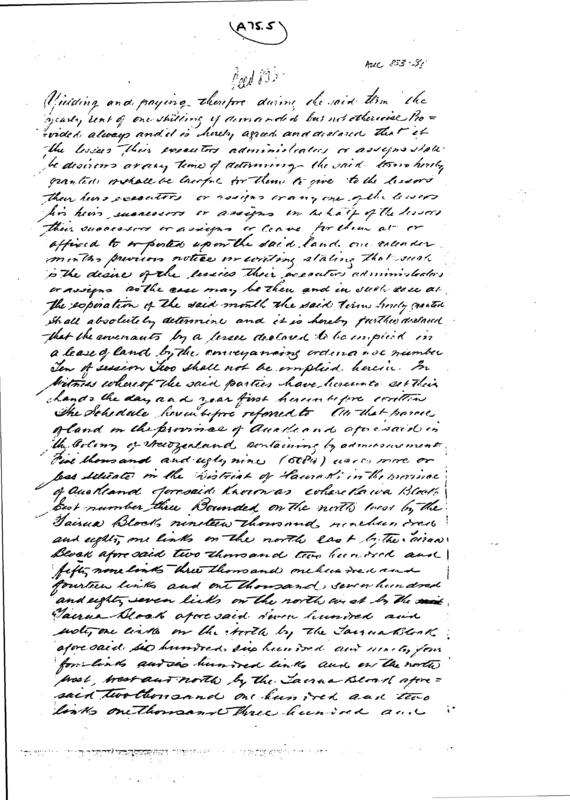 (A75.5)
Deed 893
Yielding and paying therefore during the said term the
yearly rent of one shilling if demanded but not otherwise Pro=
vided always and it is hereby agreed and declared that if
the lessees their executors administrators or assigns shall
be desirous at any time of determining the said term hereby
granted it shall be lawful for them to give to the lessors
their heirs executors or assigns or any one of the lessors
his heirs successors or assigns on behalf of the lessors
their successors or assigns or leave for them at or
affixed to or posted upon the said land one calendar
months previous notice in writing stating that such
is the desire of the lessees their executors administrators
or assigns as the case may be then and in such case at
the expiration of the said month the said term hereby granted
shall absolutely determine and it is hereby further declared
that the covenants by a lessee declared to be implied in
a lease of land by the conveyancing ordinance number
Ten of session Two shall not be implied herein. In
Witness whereof the said parties have hereunto set their
hands the day and year first hereinbefore written
The Schedule hereinbefore referred to All that parcel
of land in the province of Auckland aforesaid in
the Colony of New Zealand containing by admeasurement
Five thousand and eighty nine acres more or
less situate in the District of Hauraki in the province
of Auckland aforesaid known as Wharekawa Block
East number three Bounded on the north west by the
Tairua Block nineteen thousand nine hundred
and eighty one links on the north east by the Tairua
Block aforesaid two thousand two hundred and
fifty nine links three thousand one hundred and
fourteen links and one thousand seven hundred
and eighty seven links on the north west by the
Tairua Block aforesaid seven hundred and
sixty one links on the North by the Tairua Block
aforesaid six hundred six hundred and ninety four
four links and six hundred links and on the north
west, west and north by the Tairua Block afore=
said two thousand one hundred and two
links one thousand three hundred and